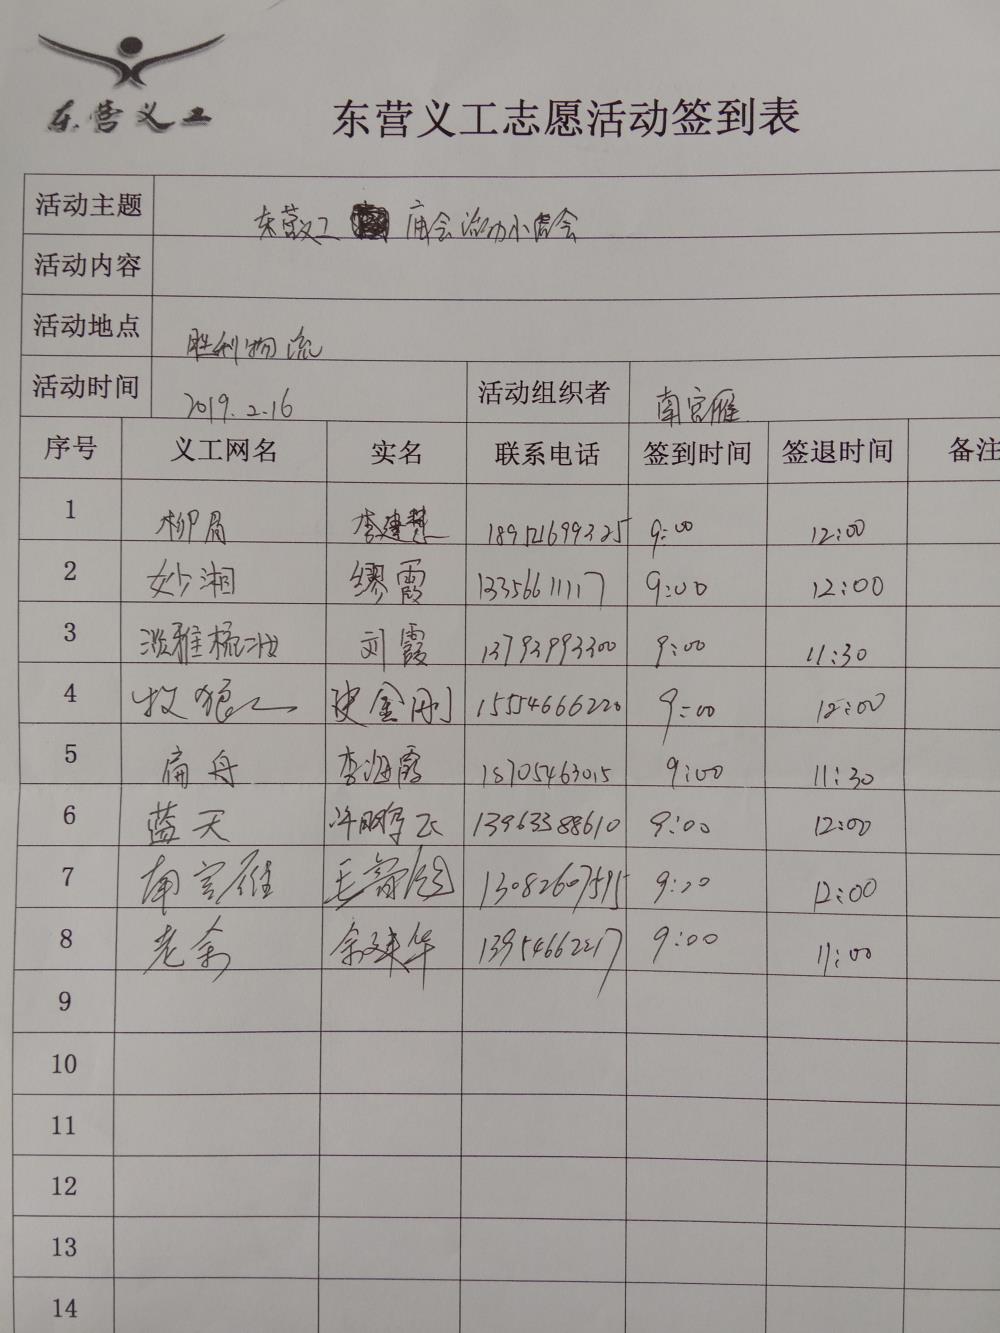 东营义工
东营义工志愿活动签到表
活动主题 东营义工 庙会活动小结会
活动内容
活动地点 胜利物流
活动时间 2019.2.16 活动组织者 南宫雁
序号 义工网名 实名 联系电话 签到时间 签退时间 备注
1 柳眉 李建慧 9:00 12:00
2 妙湘 缪霞 13356611117 9:00 12:00
3 淡雅梳妆 刘霞 13793993300 9:00 11:30
4 牧狼人 史金刚 15554666220 9:00 12:00
5 扁舟 李海霞 18705463015 9:00 11:30
6 蓝天 许鹏飞 13963388610 9:00 12:00
7 南宫雁 13082607595 9:20 12:00
8 老余 余建华 13954662217 9:00 11:00
9
10
11
12
13
14